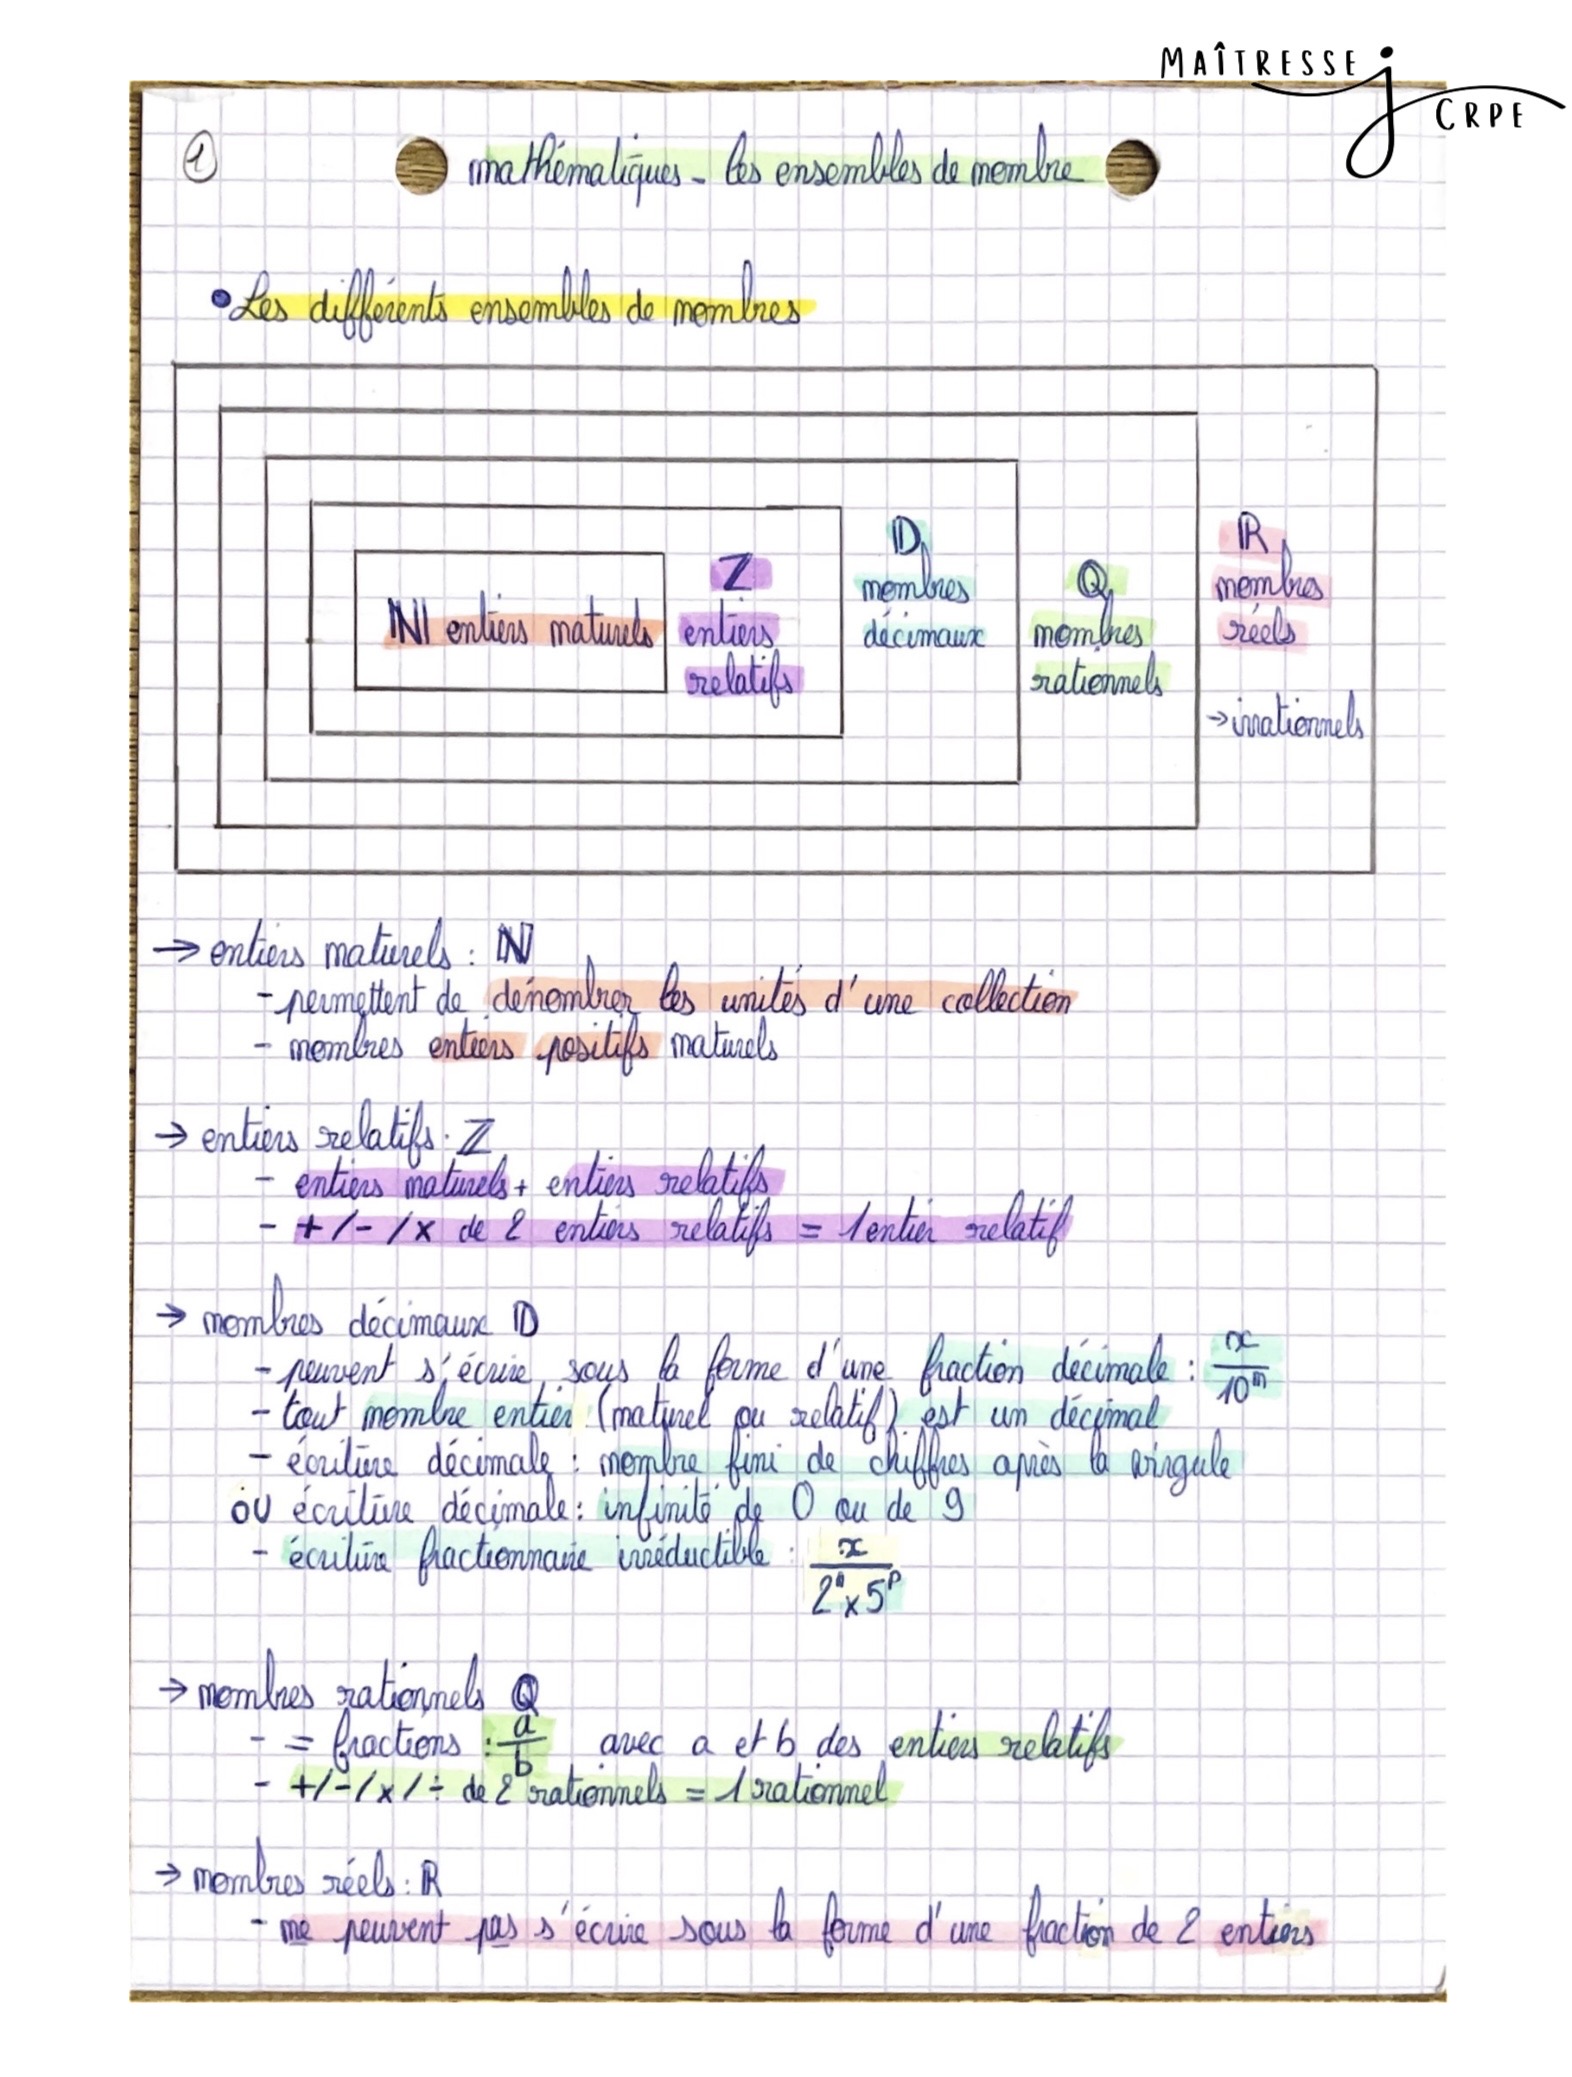 MAÎTRESSE J CRPE
1
mathématiques - les ensembles de nombre
• Les différents ensembles de nombres
ℕ entiers naturels
ℤ
entiers
relatifs
𝔻
nombres
décimaux
ℚ
nombres
rationnels
ℝ
nombres
réels
→ irrationnels
→ entiers naturels : ℕ
- permettent de dénombrer les unités d'une collection
- nombres entiers positifs naturels
→ entiers relatifs : ℤ
- entiers naturels + entiers relatifs
- + / - / x de 2 entiers relatifs = 1 entier relatif
→ nombres décimaux 𝔻
- peuvent s'écrire sous la forme d'une fraction décimale : x/10ⁿ
- tout nombre entier (naturel ou relatif) est un décimal
- écriture décimale : nombre fini de chiffres après la virgule
OU écriture décimale : infinité de 0 ou de 9
- écriture fractionnaire irréductible : x/2ⁿ x 5ᵖ
→ nombres rationnels ℚ
- = fractions : a/b avec a et b des entiers relatifs
- + / - / x / ÷ de 2 rationnels = 1 rationnel
→ nombres réels : ℝ
- ne peuvent pas s'écrire sous la forme d'une fraction de 2 entiers